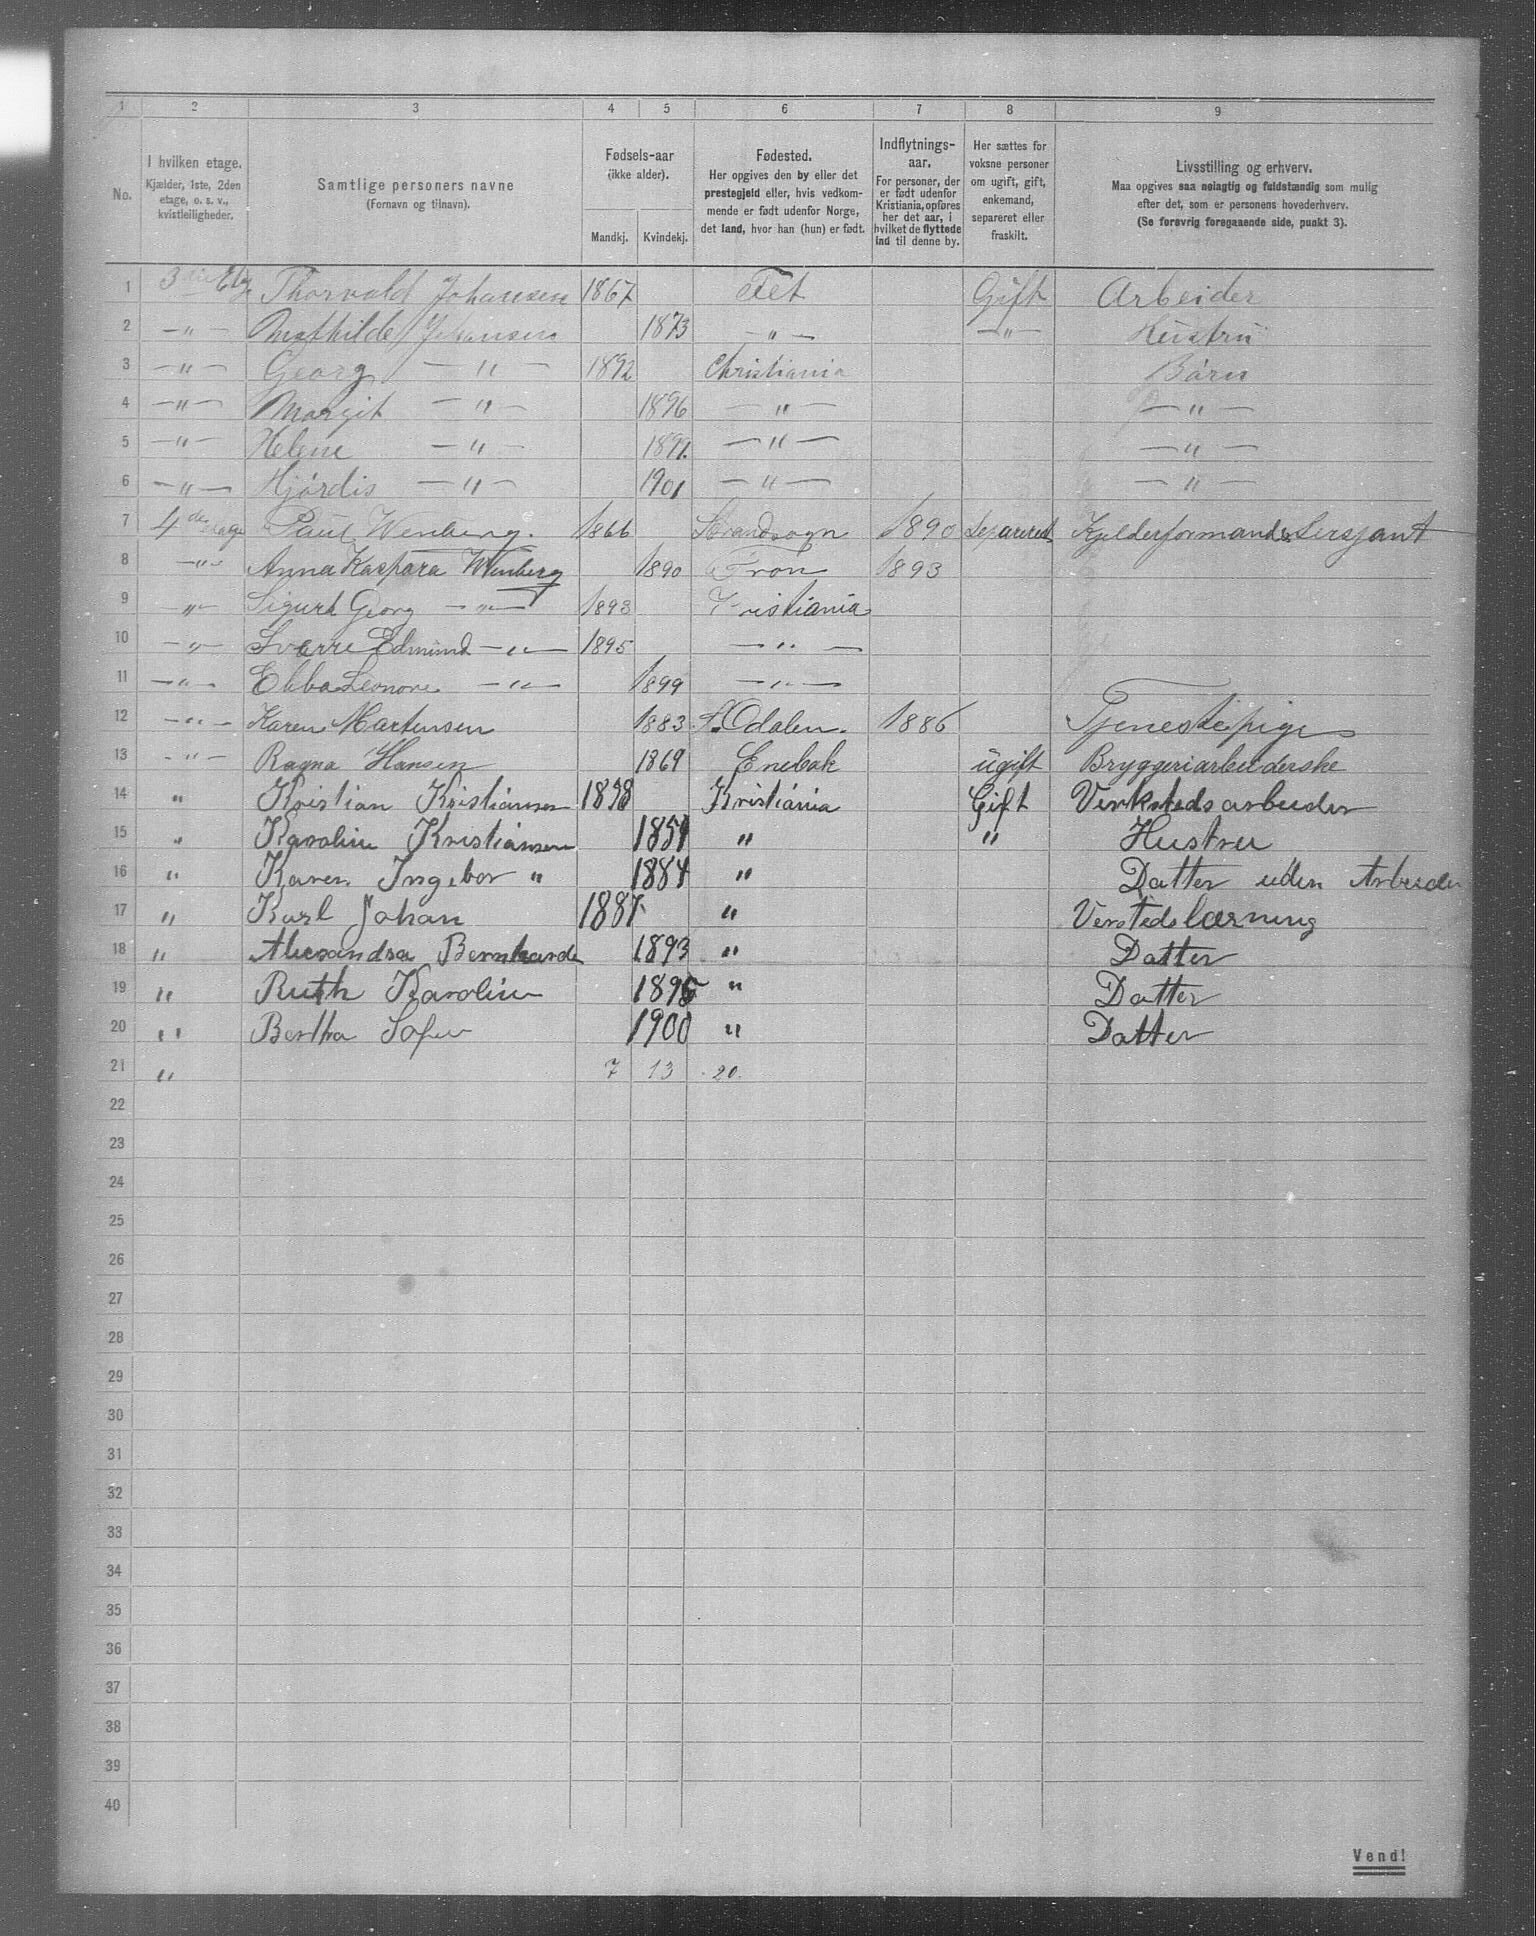 1 2 3 4 5 6 7 8 9
No.
I hvilken etage.
Kjælder, 1ste, 2den
etage, o. s. v.,
kvistleiligheder.
Samtlige personers navne
(Fornavn og tilnavn).
Fødsels-aar
(ikke alder).
Mandkj. Kvindekj.
Fødested.
Her opgives den by eller det
prestegjeld eller, hvis vedkom-
mende er født udenfor Norge,
det land, hvor han (hun) er født.
Indflytnings-
aar.
For personer, der
er født udenfor
Kristiania, opføres
her det aar, i
hvilket de flyttede
ind til denne by.
Her sættes for
voksne personer
om ugift, gift,
enkemand,
separeret eller
fraskilt.
Livsstilling og erhverv.
Maa opgives saa nøiagtig og fuldstændig som mulig
efter det, som er personens hovederhverv.
(Se forøvrig foregaaende side, punkt 3).
1 3die Etg. Thorvald Johansen 1867 Fet Gift Arbeider
2 —"— Mathilde Johansen 1873 —"— —"— Hustru
3 —"— Georg —"— 1892 Christiania Børn
4 —"— Margit —"— 1896 —"— —"—
5 —"— Helene —"— —"— —"—
6 —"— Hjørdis —"— 1901 —"— —"—
7 4de etage Paul Wenberg. 1866 Strandsogn 1890 Separeret Kjelderformand & Sersjant
8 —"— Anna Kaspara Wenberg 1890 Fron 1893
9 —"— Sigurd Georg —"— 1893 Kristiania
10 —"— Sverre Edmund —"— 1895 —"—
11 —"— Ebba Leonore —"— 1899 —"—
12 —"— Karen Martensen 1883 S. Odalen. 1886 Tjenestepige
13 —"— Ragna Hansen 1869 Enebak ugift Bryggeriarbeiderske
14 " Kristian Kristiansen Kristiania Gift Verkstedsarbeider
15 " Karoline Kristiansen 1851 " " Hustru
16 " Karen Ingebor " 1884 " Datter uden Arbeide
17 " Karl Johan 1887 " Verstedslærning
18 " Alexandra Bernharde 1893 " Datter
19 " Ruth Karoline 1895 " Datter
20 " Bertha Sofie 1900 " Datter
21 " 7 13 20.
22
23
24
25
26
27
28
29
30
31
32
33
34
35
36
37
38
39
40
Vend!